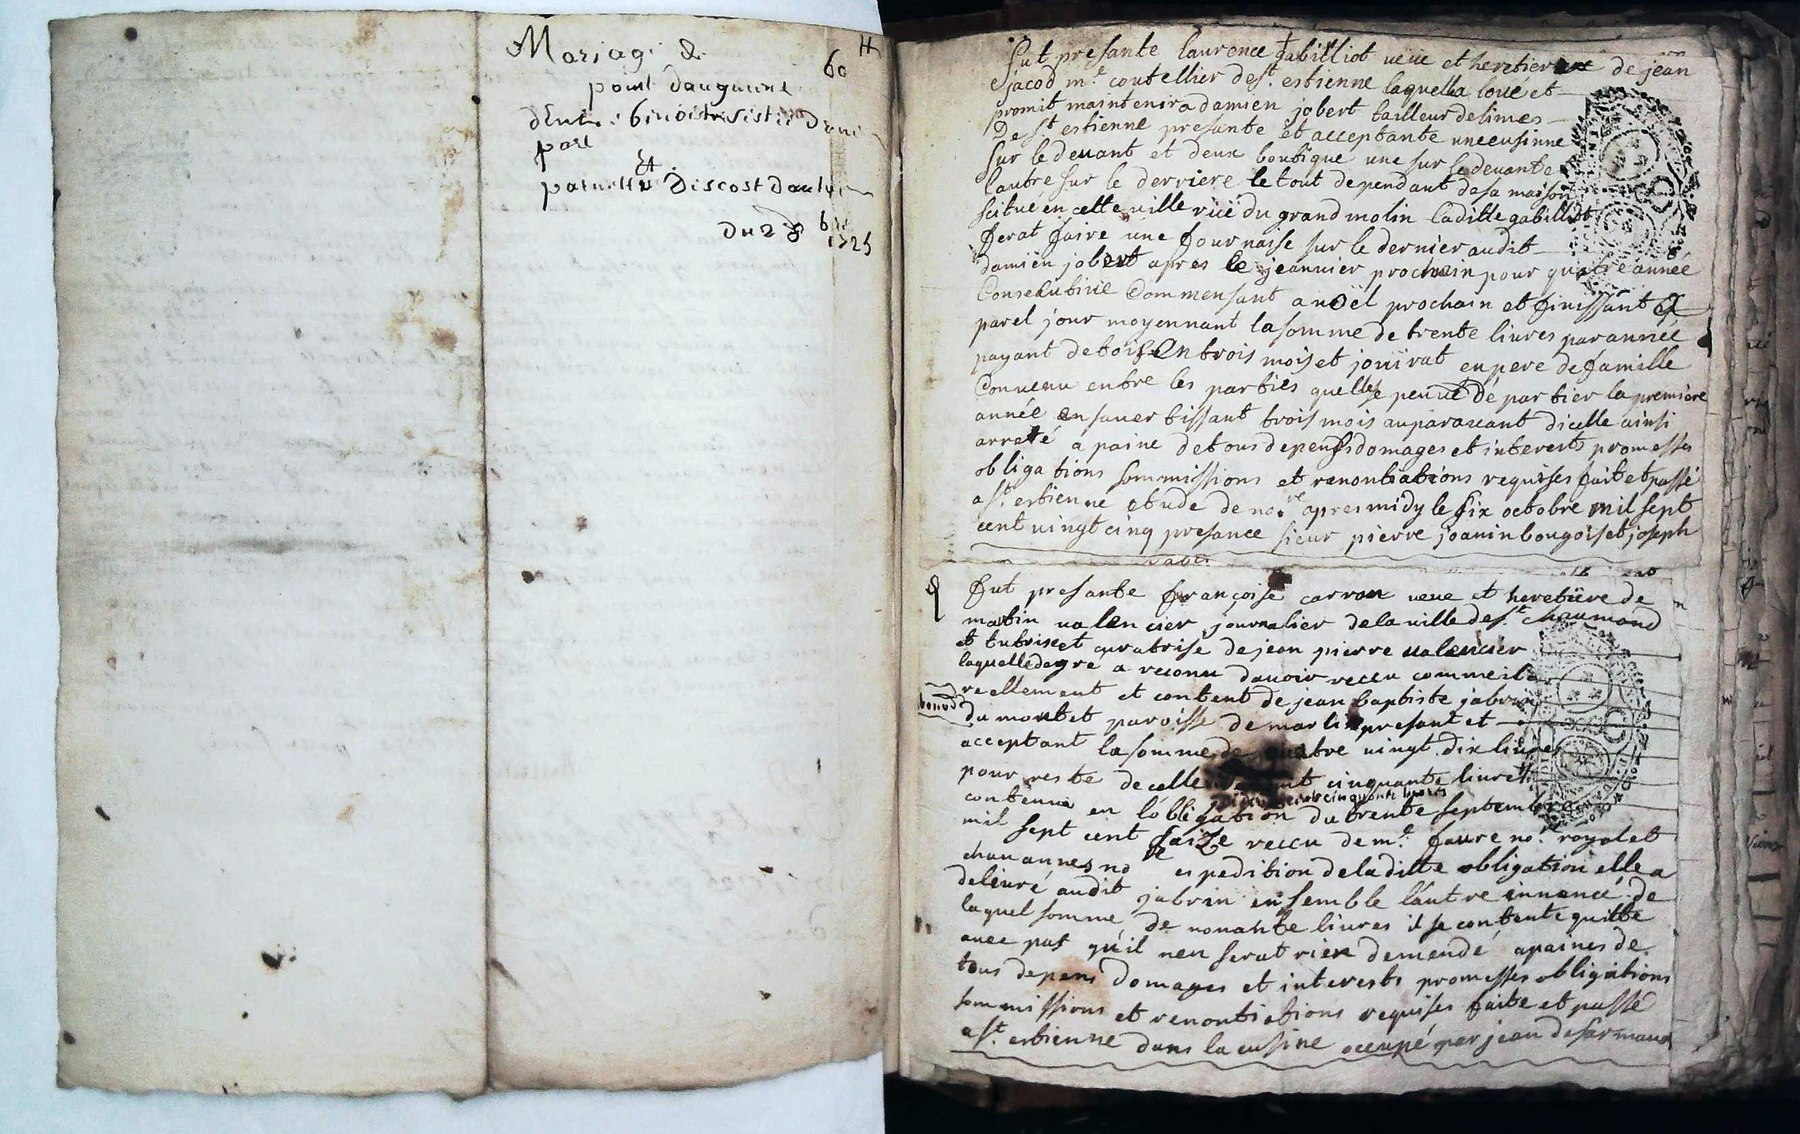 Mariage &
60
point daugment
dEntre
part
Et
Discost Dautre
Du 28 bre
1725
fut presante laurence gabilliot veüe et heretiere de jean
jacod me coutellier de st estienne laquella loüé et
promit maintenir a damien jobert tailleur de limes
De st estienne presante et acceptante une cusinne
sur le devant et deux boutique une sur le devante
lautre sur le derriere le tout dependant de sa maison
scitué en cette ville rüe du grand molin laditte gabilliot
ferat faire une fournaise sur le dernier audit
damien jobert apres le jeannier prochain pour quatre année
Consecutive Commensant a noël prochain et finissant a
parel jour moyennant la somme de trente livres par année
payant de trois en trois mois et jouirat en pere de famille
Convenu entre les parties quelle peuve départier la premiere
année en savertissant trois mois auparavant dicelle ainsi
arreté a paine de tous depens domages et interests promesses
obligations sommissions et renontiations requises fait et passé
a st estienne etude de nore apres midy le six octobre mil sept
cent vingt cinq presance sieur pierre joanin bougois et joseph
fut presante françoise carron veue et heretiere de
martin valencier journalier de la ville de st chaumond
et tutrise et curatrise de jean pierre valencier
laquelle de gre a reconu davoir receu comme il
reellement et content de jean baptiste jabrin
du montet paroisse de marlis presant et
acceptant la somme de quatre vingt dix livres
pour reste de celle cent cinquante livres
cinquante livres
contenue en lobligation du trente septembre
mil sept cent saize receu de me faure nore royal et
chavannes no espedition de laditte obligation elle a
delivré audit jabrin ensemble lautre ennoncé de
laquel somme de nonante livres il se contente quitte
avec pat qu'il nen serat rien demendé a paines de
tous depens domages et interests promesses obligations
sommissions et renontiations requises faite et passé
a st estienne dans la cusine occupé par jean desarmaux